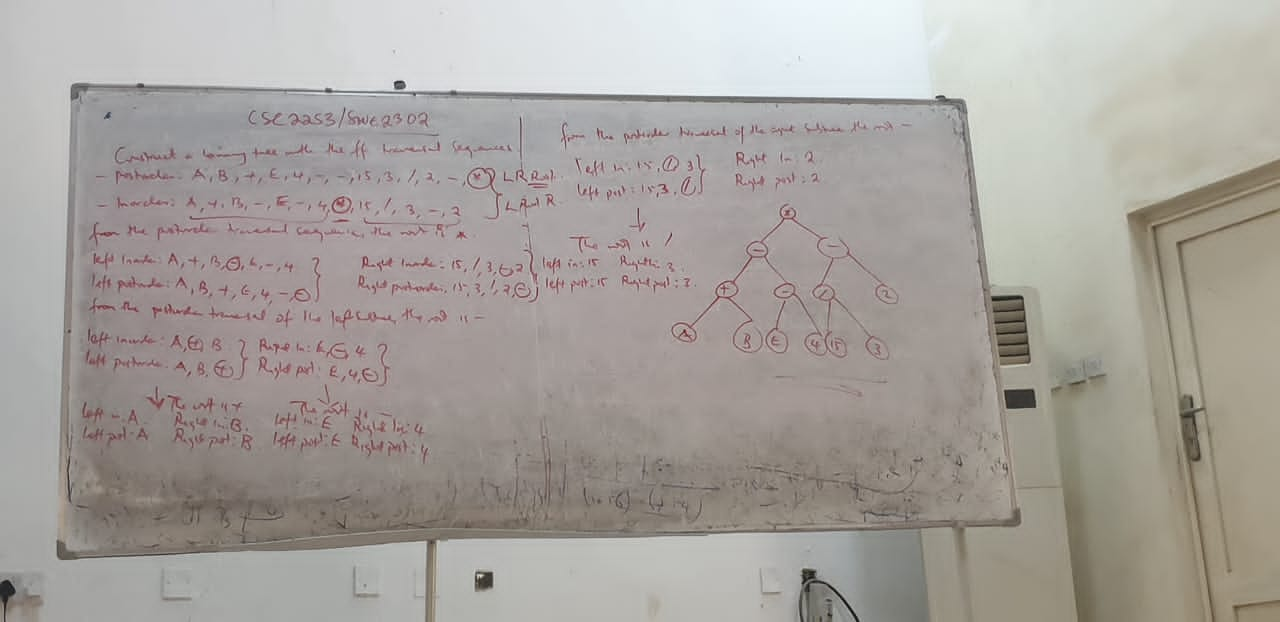 CSC2253/SWE2302
Construct a binary tree with the ff traversal sequences
- postorder: A, B, +, E, 4, -, -, 15, 3, /, 2, -, * } L R Root.
- Inorder: A, +, B, -, E, -, 4, *, 15, /, 3, -, 2 } L Root R.
from the postorder traversal sequences, the root is *
left Inorder: A, +, B, -, E, -, 4
left postorder: A, B, +, E, 4, -, -
Right Inorder: 15, /, 3, -, 2
Right postorder: 15, 3, /, 2, -
from the postorder traversal of the left subtree, the root is -
left inorder: A, +, B
left postorder: A, B, +
Right In: E, -, 4
Right post: E, 4, -
The root is +
left in: A Right In: B.
left post: A Right post: B
The root is -
left in: E Right In: 4
left post: E Right post: 4
from the postorder traversal of the right subtree the root -
left in: 15, /, 3
left post: 15, 3, /
Right In: 2.
Right post: 2.
The root is /
left in: 15 Right In: 3.
left post: 15 Right post: 3.
*
- -
+ - / 2
A B E 4 15 3